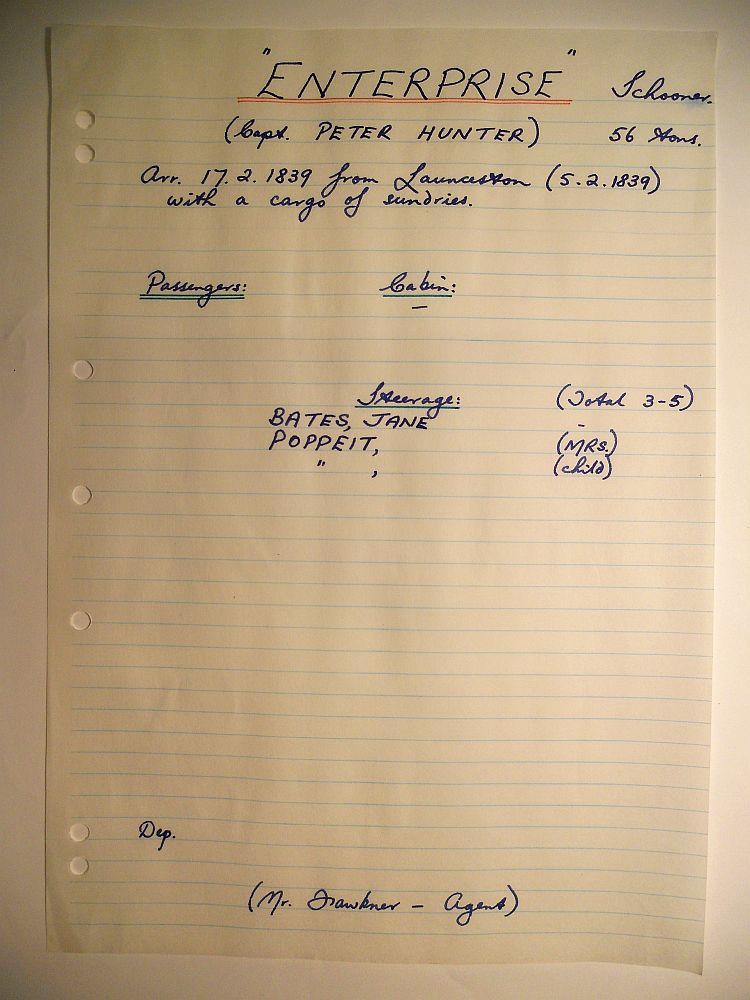 "ENTERPRISE" Schooner.
(Capt. PETER HUNTER) 56 tons.
Arr. 17.2.1839 from Launceston (5.2.1839)
with a cargo of sundries.
Passengers: Cabin:
—
Steerage: (Total 3-5)
BATES, JANE -
POPPEIT, (MRS.)
" , (child)
Dep.
(Mr. Fawkner - Agent)